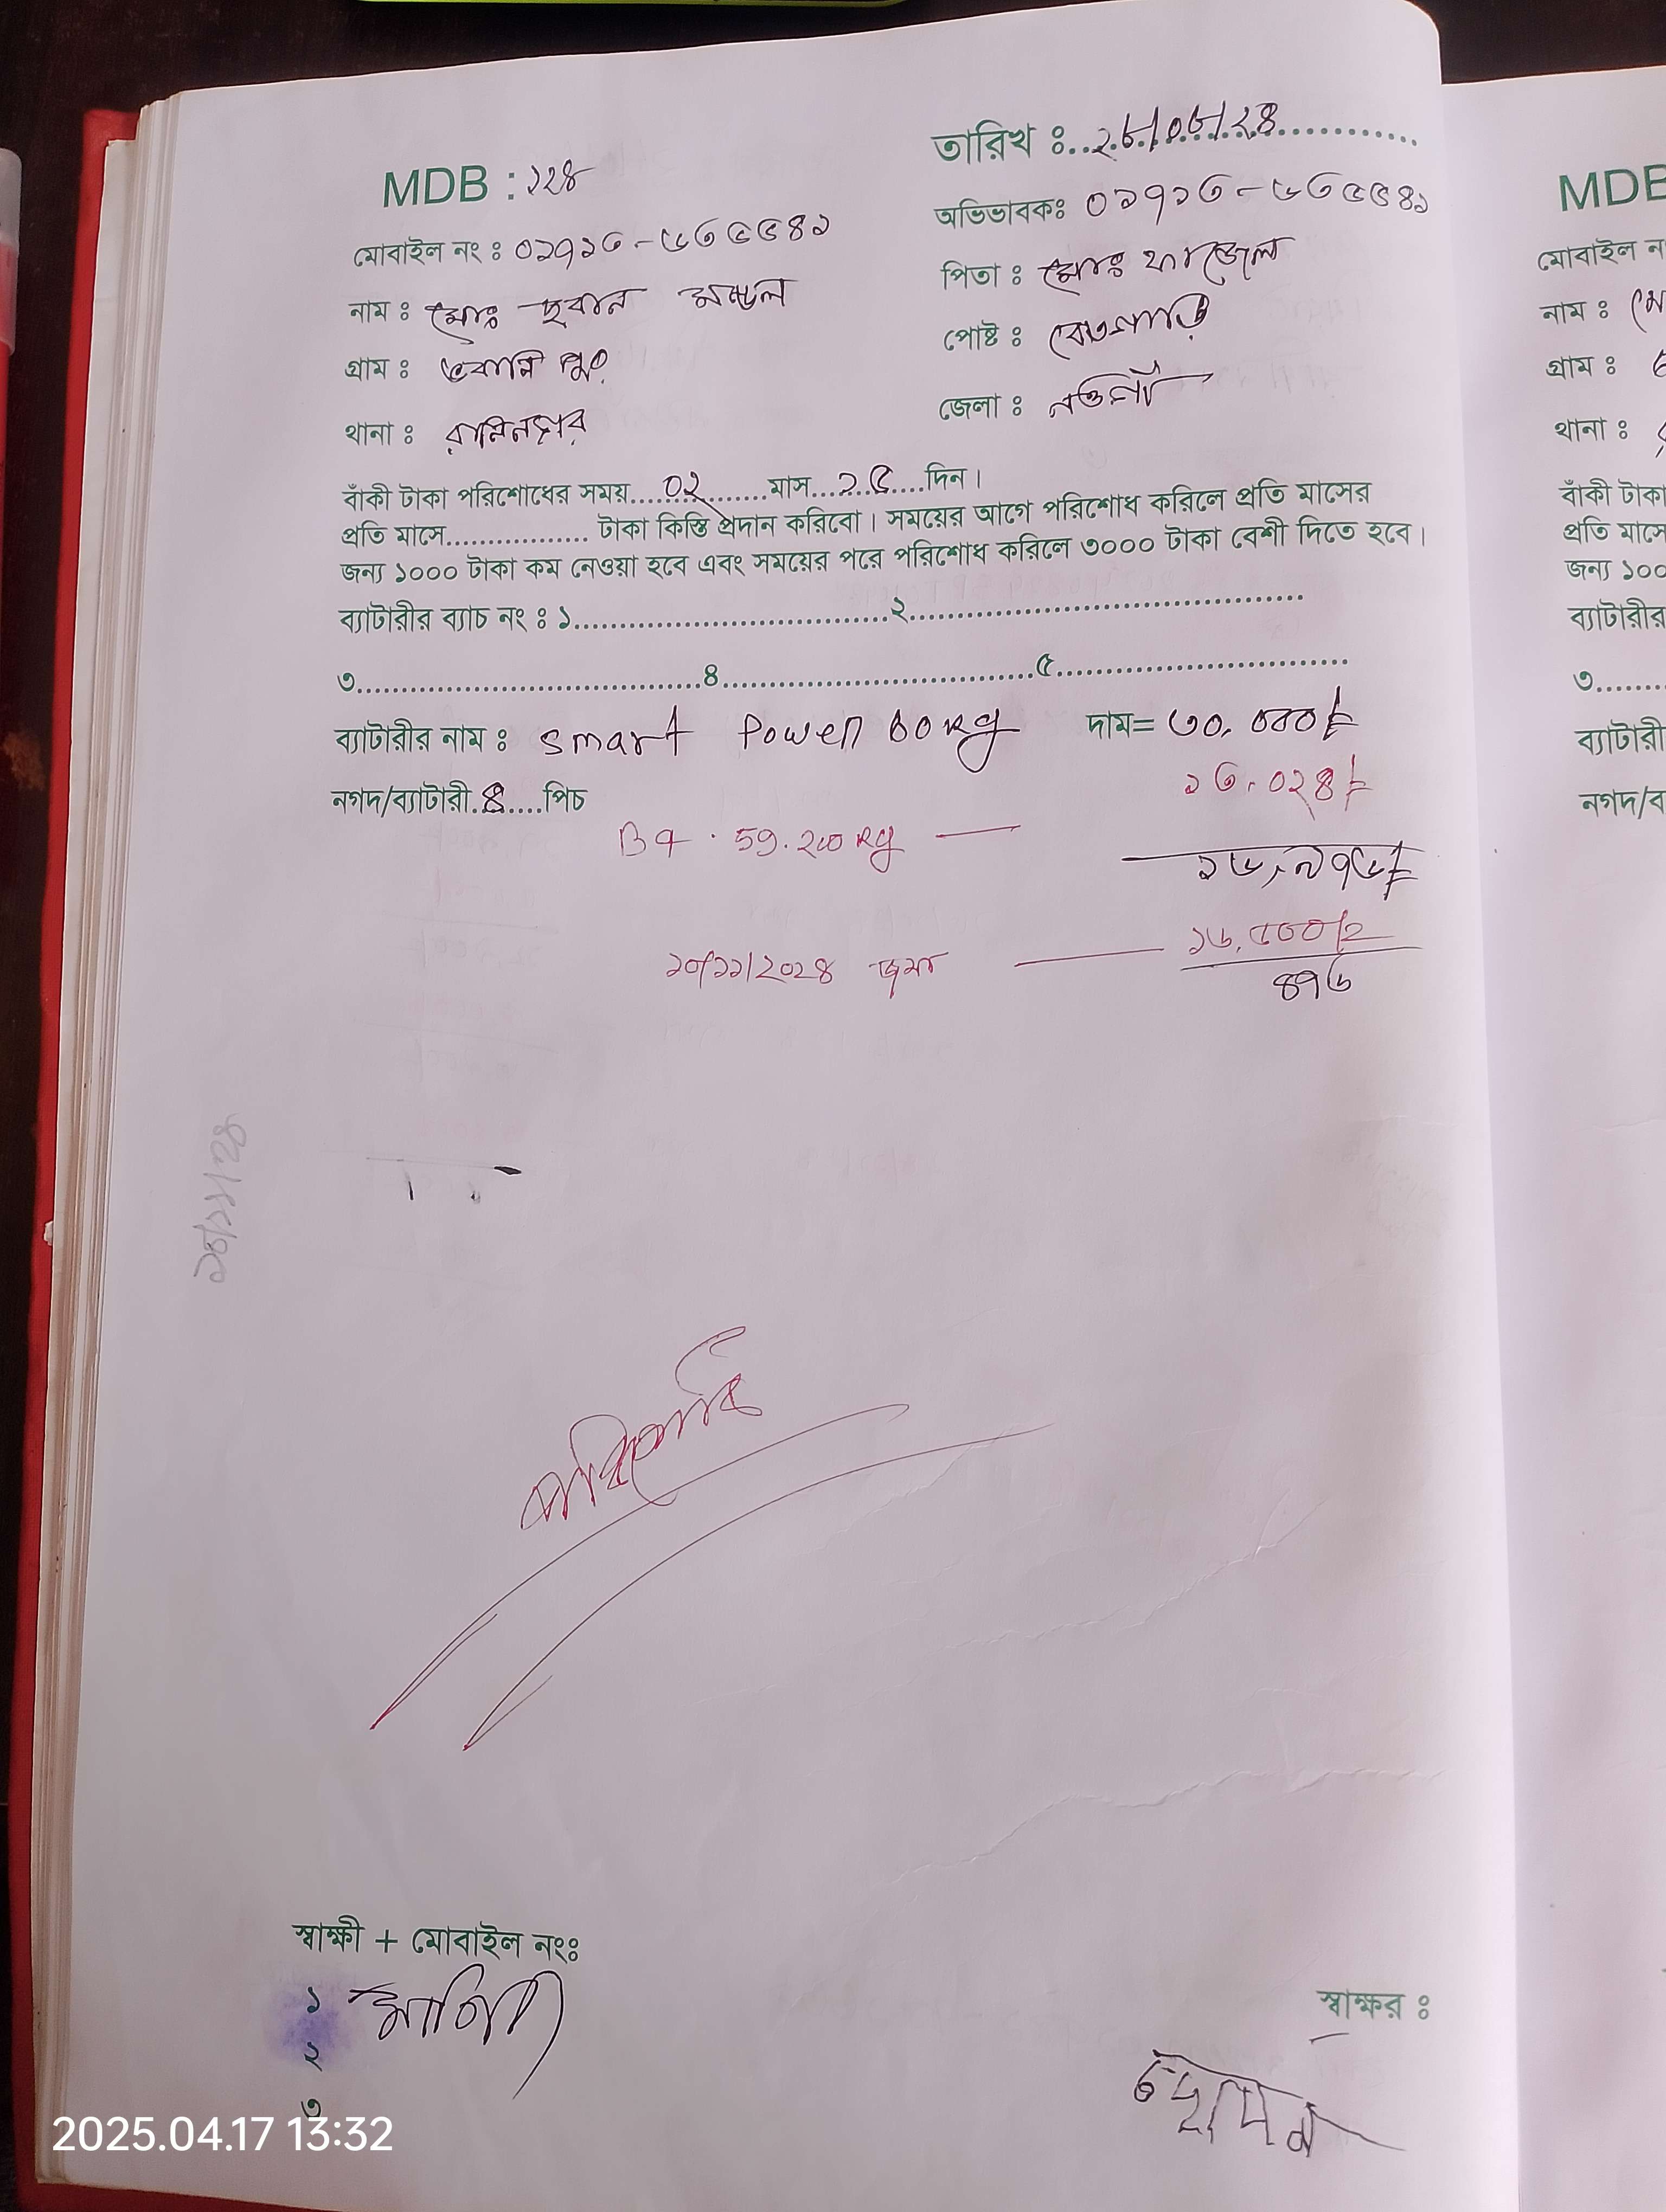 তারিখ ঃ..২৮/০৮/২৪............
MDB : ১২৪
অভিভাবকঃ ০১৭১৩-৬৩৫৫৪১
মোবাইল নং ঃ ০১৭১৩-৬৩৫৫৪১
পিতা ঃ মোঃ ফাজেল
নাম ঃ মোঃ ছবান মন্ডল
পোষ্ট ঃ বেতগাড়ি
গ্রাম ঃ ভবানি পুর
জেলা ঃ নওগাঁ
থানা ঃ রানিনগর
বাঁকী টাকা পরিশোধের সময়....০২.......মাস...১৫....দিন।
প্রতি মাসে................. টাকা কিস্তি প্রদান করিবো। সময়ের আগে পরিশোধ করিলে প্রতি মাসের
জন্য ১০০০ টাকা কম নেওয়া হবে এবং সময়ের পরে পরিশোধ করিলে ৩০০০ টাকা বেশী দিতে হবে।
ব্যাটারীর ব্যাচ নং ঃ ১....................................২.............................................
৩.......................................৪....................................৫.................................
ব্যাটারীর নাম ঃ Smart Power 60 kg দাম= ৩০,০০০/=
১৩,০২৪/=
নগদ/ব্যাটারী.৪....পিচ
B4 . 59.200 kg —
১৬,৯৭৬/=
১০/১১/২০২৪ জমা — ১৬,৫০০/=
৪৭৬
পরিশোধ
স্বাক্ষী + মোবাইল নংঃ
১
২
৩
স্বাক্ষর ঃ
2025.04.17 13:32
MDB
মোবাইল ন
নাম ঃ মো
গ্রাম ঃ
থানা ঃ
বাঁকী টাকা
প্রতি মাসে
জন্য ১০০
ব্যাটারীর
৩......
ব্যাটারী
নগদ/ব